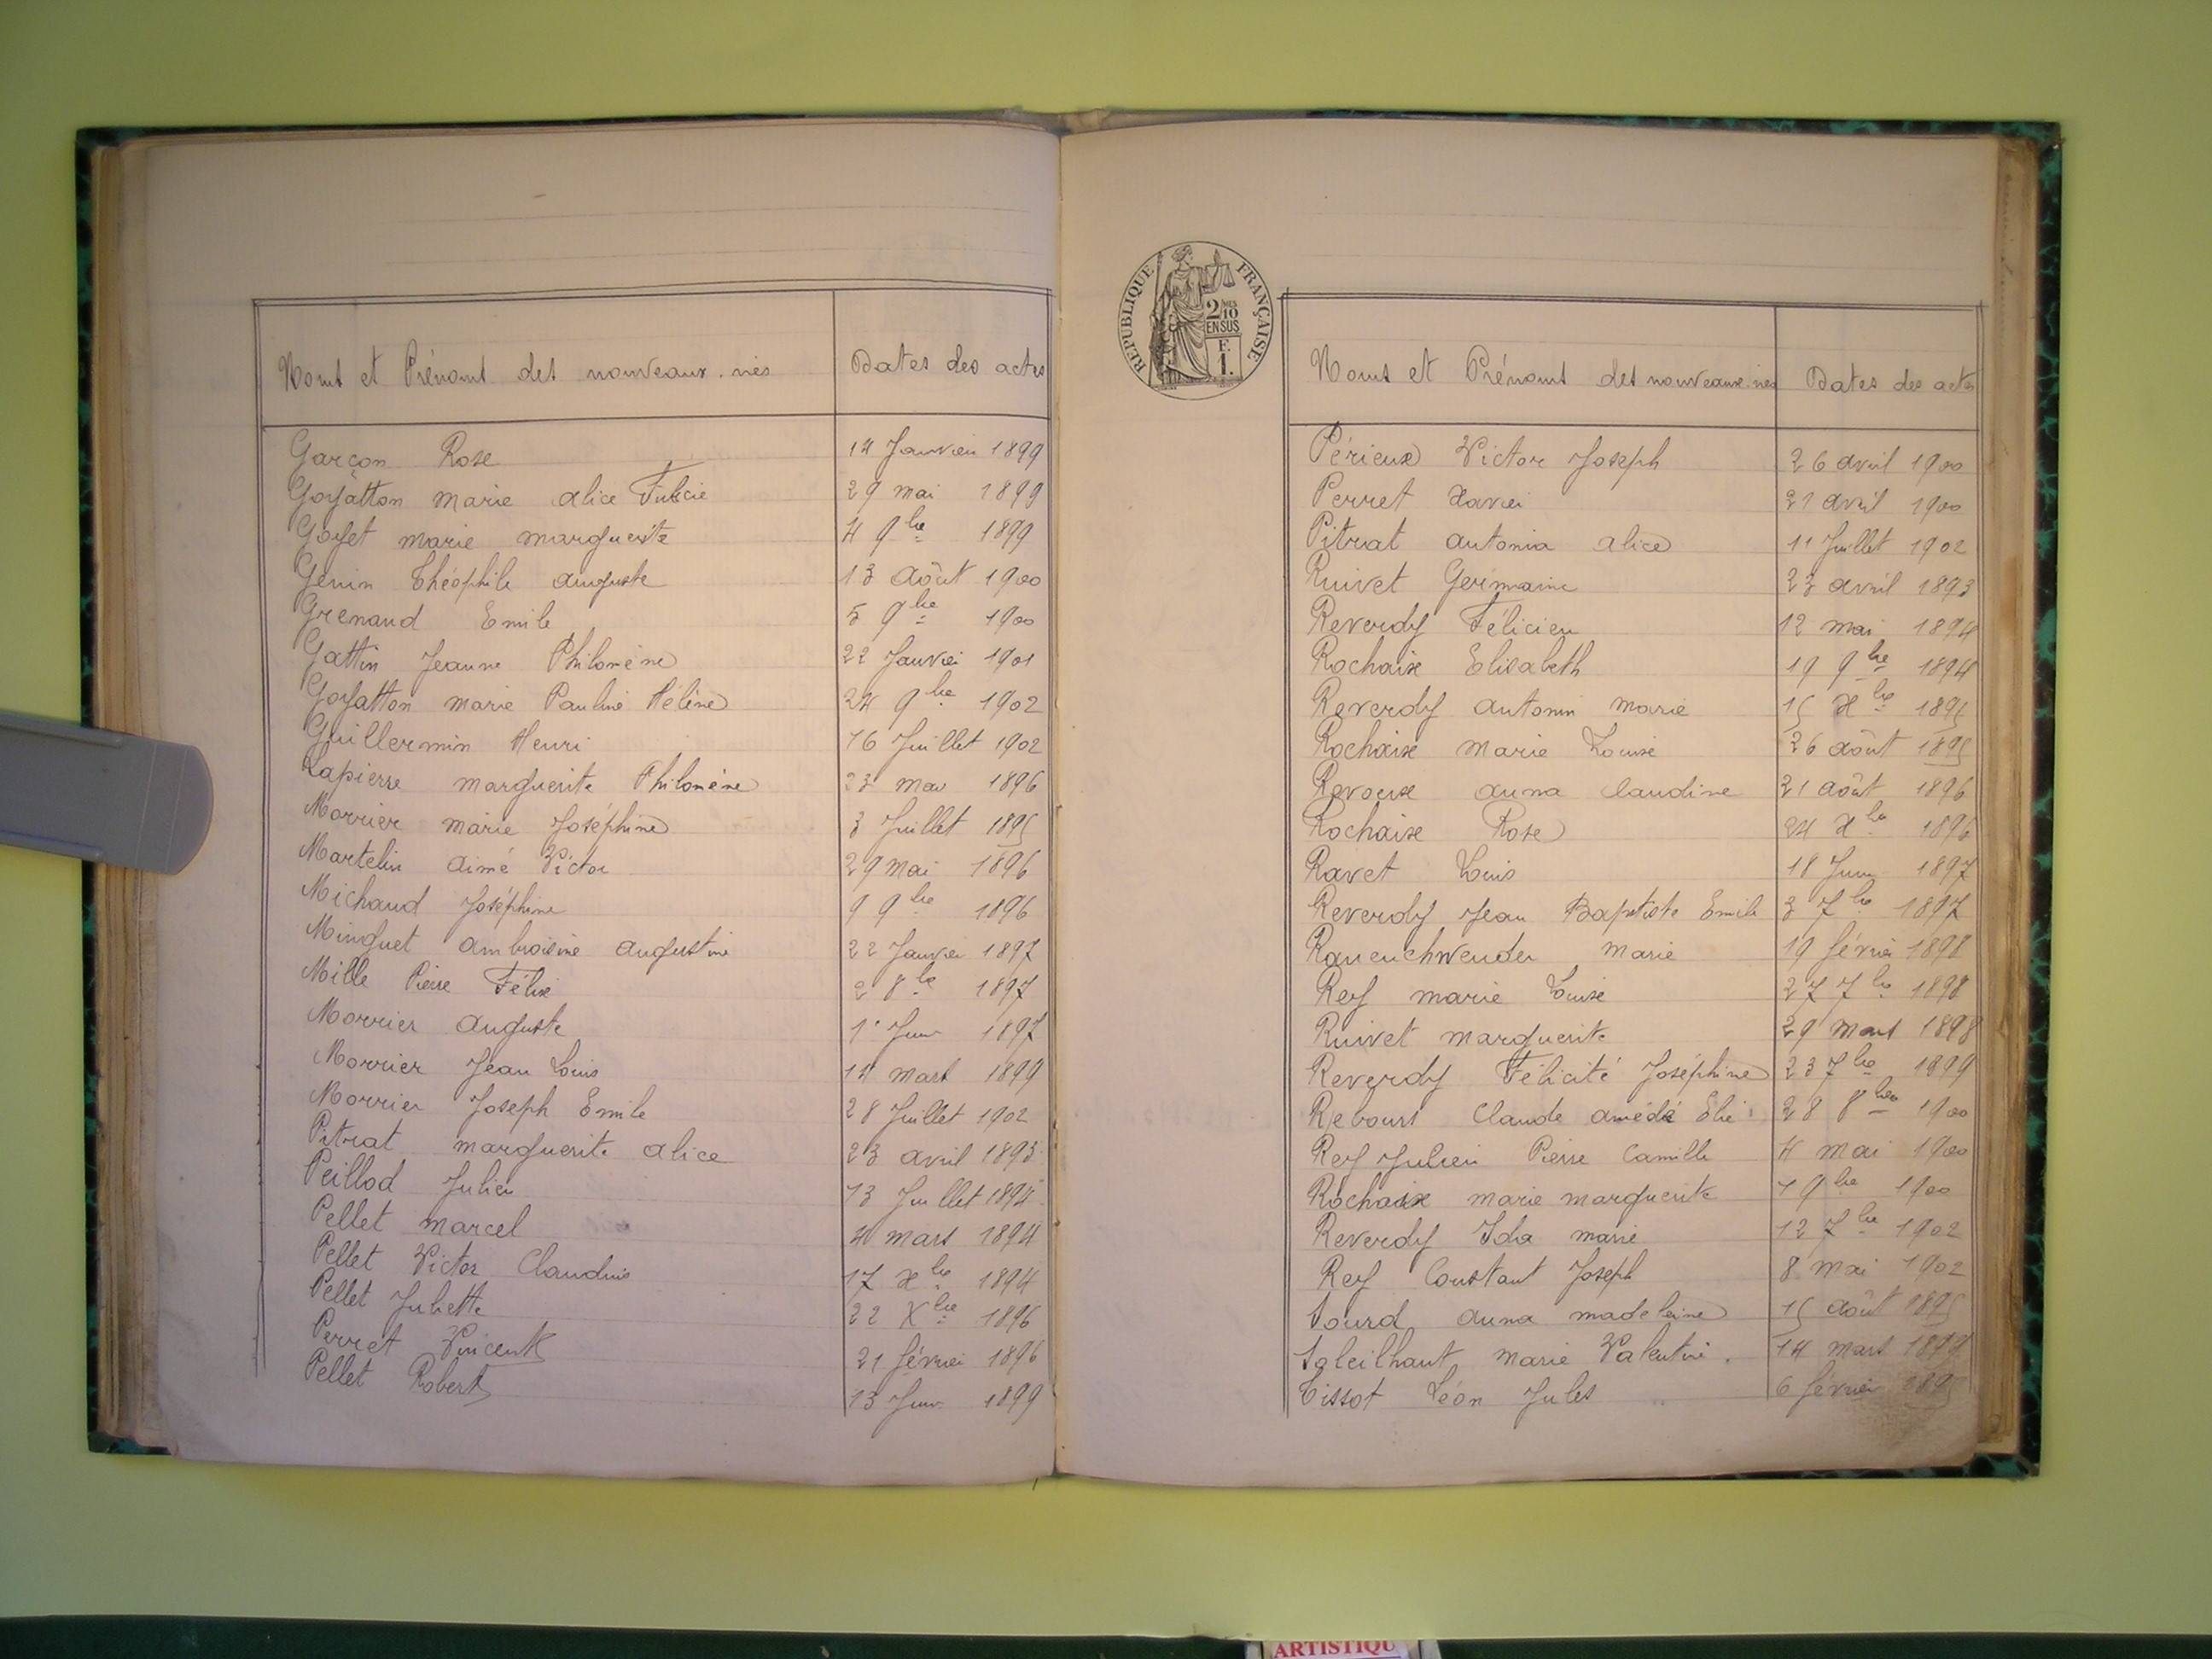 Noms et Prénoms des nouveaux-nés Dates des actes
Garçon Rose 14 Janvier 1899
Goyatton marie alice Félicie 29 mai 1899
Goyet marie marguerite 4 9bre 1899
Genin Théophile auguste 13 août 1900
Grenaud Emile 5 9bre 1900
Gattin Jeanne Philomène 22 Janvier 1901
Goyatton marie Pauline Hélène 24 9bre 1902
Guillermin Henri 16 Juillet 1902
Lapierre marguerite Philomène 23 1896
Morrier marie Joséphine 3 Juillet 1895
Martelin aimé Victor 29 mai 1896
Michaud Joséphine 9 9bre 1896
Minguet ambroisine augustine 22 Janvier 1897
Mille Pierre Félix 2 8bre 1897
Morrier auguste 1er Juin 1897
Morrier Jean Louis 14 mars 1899
Morrier Joseph Emile 28 Juillet 1902
Pitrat marguerite alice 23 avril 1893
Peillod Julien 13 Juillet 1894
Pellet marcel 4 mars 1894
Pellet Victor Claudius 17 Xbre 1894
Pellet Juliette 22 Xbre 1896
Perret Vincent 21 février 1896
Pellet Robert 13 Juin 1899
RÉPUBLIQUE FRANÇAISE
2/10 EN SUS
F. 1.
Noms et Prénoms des nouveaux-nés Dates des actes
Périeux Victor Joseph 26 avril 1900
Perret Xavier 21 avril 1900
Pitrat antonia alice 11 Juillet 1902
Ruivet Germaine 23 avril 1893
Reverdy Félicien 12 mai 1894
Rochaix Elisabeth 19 9bre 1894
Reverdy antonin marie 15 Xbre 1895
Rochaix marie Louise 26 août 1895
Revoux anna Claudine 21 août 1896
Rochaix Rose 24 Xbre 1896
Ravet Louis 18 Juin 1897
Reverdy Jean Baptiste Emile 3 7bre 1897
Rauenchwender Marie 19 février 1898
Rey marie Louise 27 7bre 1898
Ruivet marguerite 29 mars 1898
Reverdy Félicité Joséphine 23 7bre 1899
Rebours Claude amédé Elie 28 8bre 1900
Rey Julien Pierre Camille 4 mai 1900
Rochaix marie marguerite 7 9bre 1900
Reverdy Ida marie 12 7bre 1902
Rey Constant Joseph 8 mai 1902
Sourd anna madeleine 15 août 1895
Saleilhant marie Valentine. 14 mars
Tissot Léon Jules 6 février 1895
ARTISTIQU